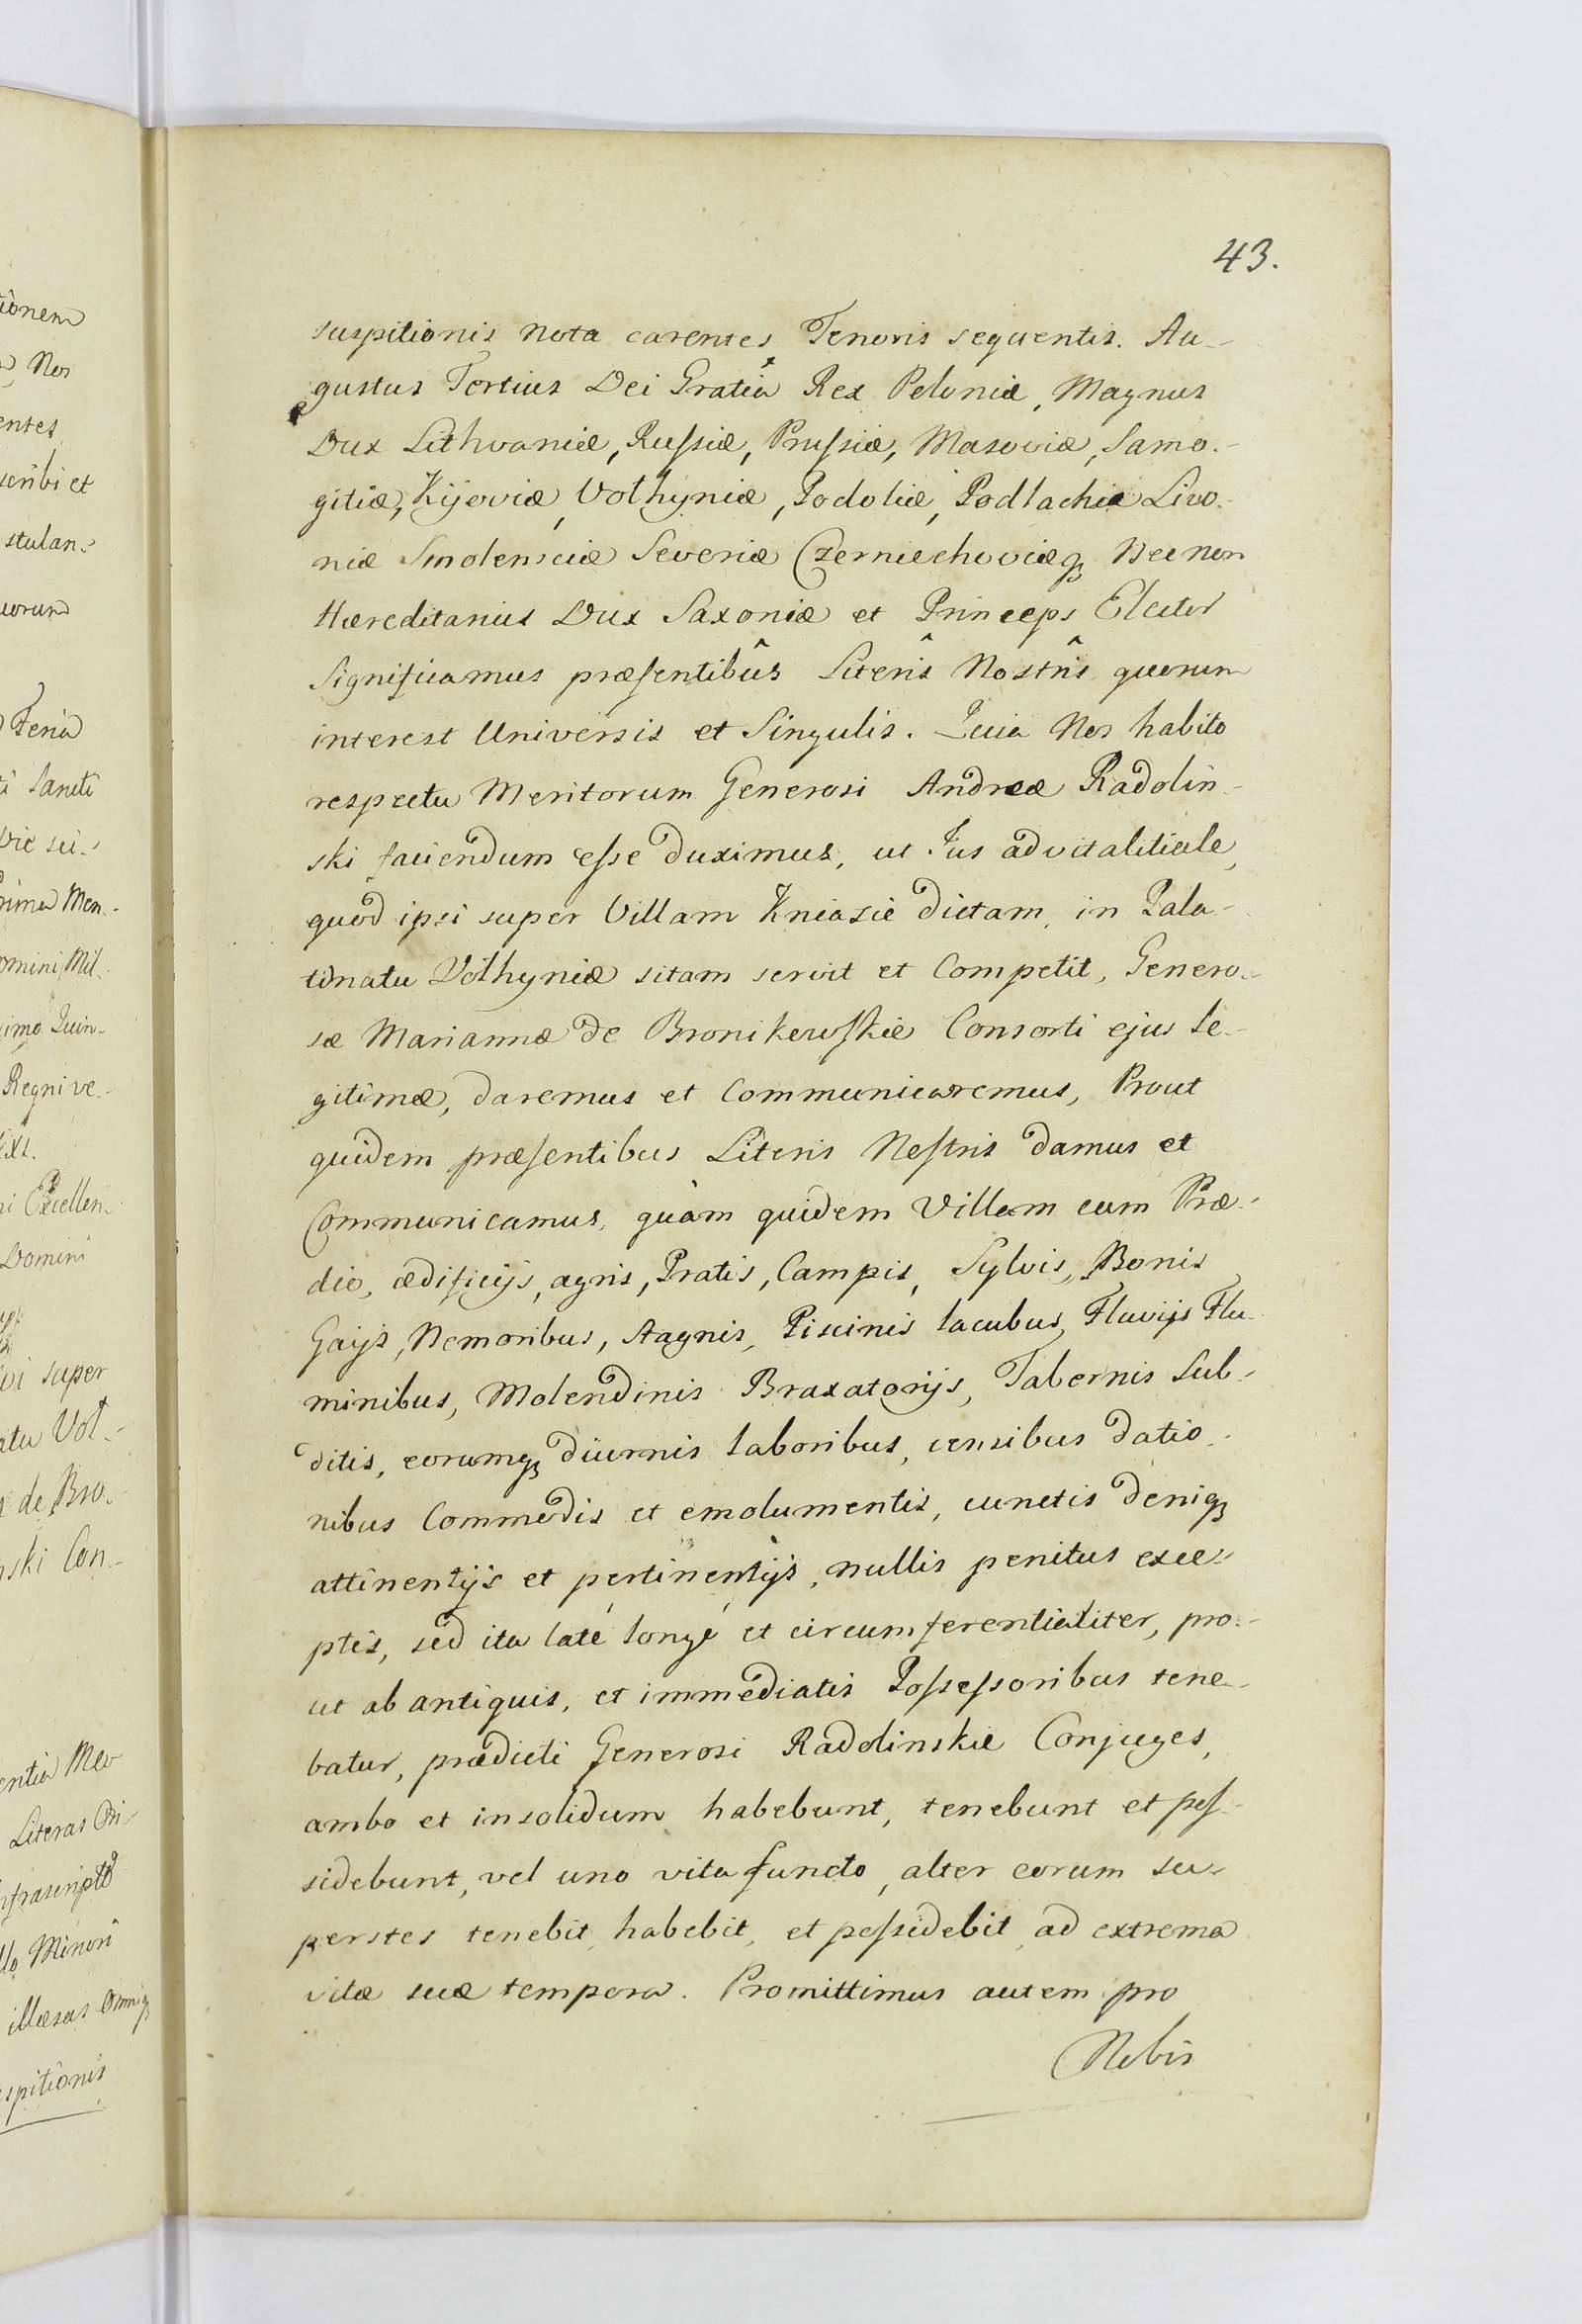 43.
suspitionis Nota carentes Tenoris sequentis. Au-
gustus Tertius Dei Gratia Rex Poloniæ, Magnus
Dux Lithvaniæ, Russiæ, Prussiæ, Masoviæ, Samo-
gitiæ, Kijoviæ, Volhyniæ, Podoliæ, Podlachiæ Livo-
niæ Smolensciæ Severiæ Czerniechoviæq3 Necnon
Hæreditarius Dux Saxoniæ et Princeps Elector
Significamus præsentibûs Literîs Nostrîs quorum
interest Universis et Singulis. Quia Nos habito
respectu Meritorum Generosi Andreæ Radolin-
ski faciendum esse duximus, ut Jus advitalitiale,
quod ipsi super Villam Kniazie dictam, in Pala-
tinatu Volhyniæ sitam servit et Competit, Genero-
sæ Mariannæ de Bronikowskie Consorti ejus le-
gitimæ, daremus et Communicaremus, Prout
quidem præsentibus Literis Nostris damus et
Communicamus, quàm quidem Villam cum Præ-
dio, ædificijs, agris, Pratis, Campis, Sylvis, Bonis
Gajis, Nemoribus, stagnis, Piscinis lacubus, Fluvijs Flu-
minibus, Molendinis Braxatorijs, Tabernis Sub-
ditis, eorumq3 diurnis laboribus, censibus datio-
nibus Commodis et emolumentis, cunctis deniq3
attinentijs et pertinentijs, nullis penitus exce-
ptis, sed ita laté longé et circumferentialiter, pro-
ut ab antiquis, et immediatis Possessoribus tene-
batur, prædicti Generosi Radolinskie Conjuges,
ambo et insolidum habebunt, tenebunt et pos-
sidebunt, vel uno vita functo, alter eorum su-
perstes tenebit, habebit, et possidebit, ad extrema
vitæ suæ tempora. Promittimus autem pro
Nobis